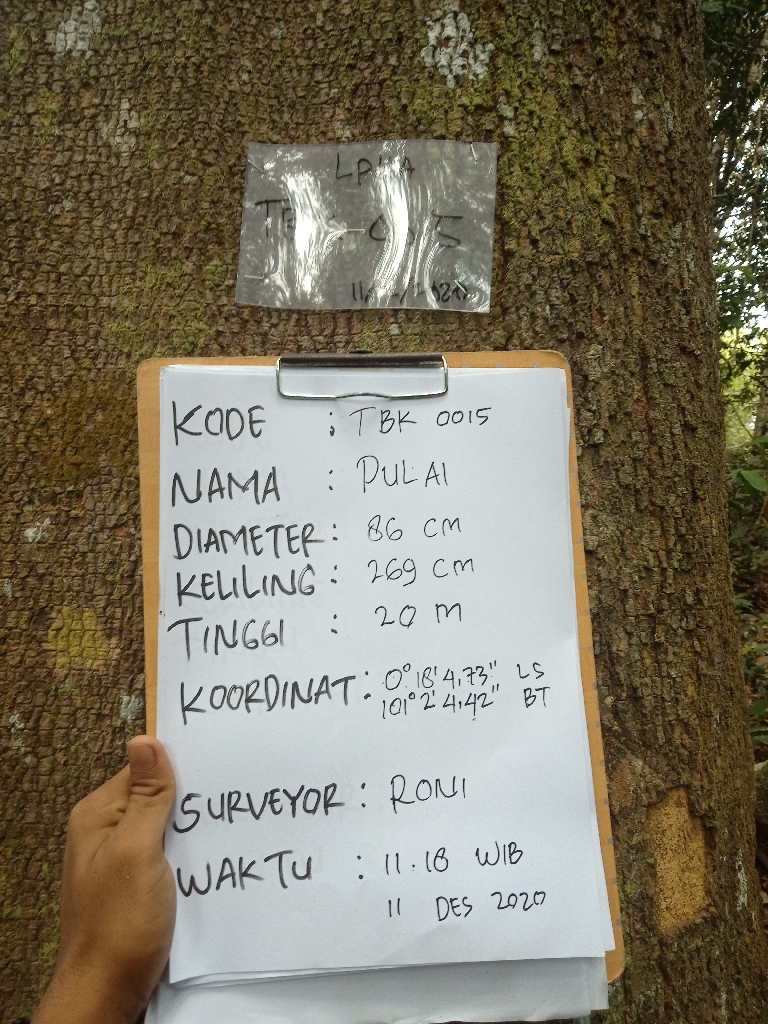 KODE : TBK 0015
NAMA : PULAI
DIAMETER : 86 cm
KELILING : 269 cm
TINGGI : 20 m
KOORDINAT : 0° 18' 4,73" LS
101° 2' 4,42" BT
SURVEYOR : RONI
WAKTU : 11.18 WIB
11 DES 2020